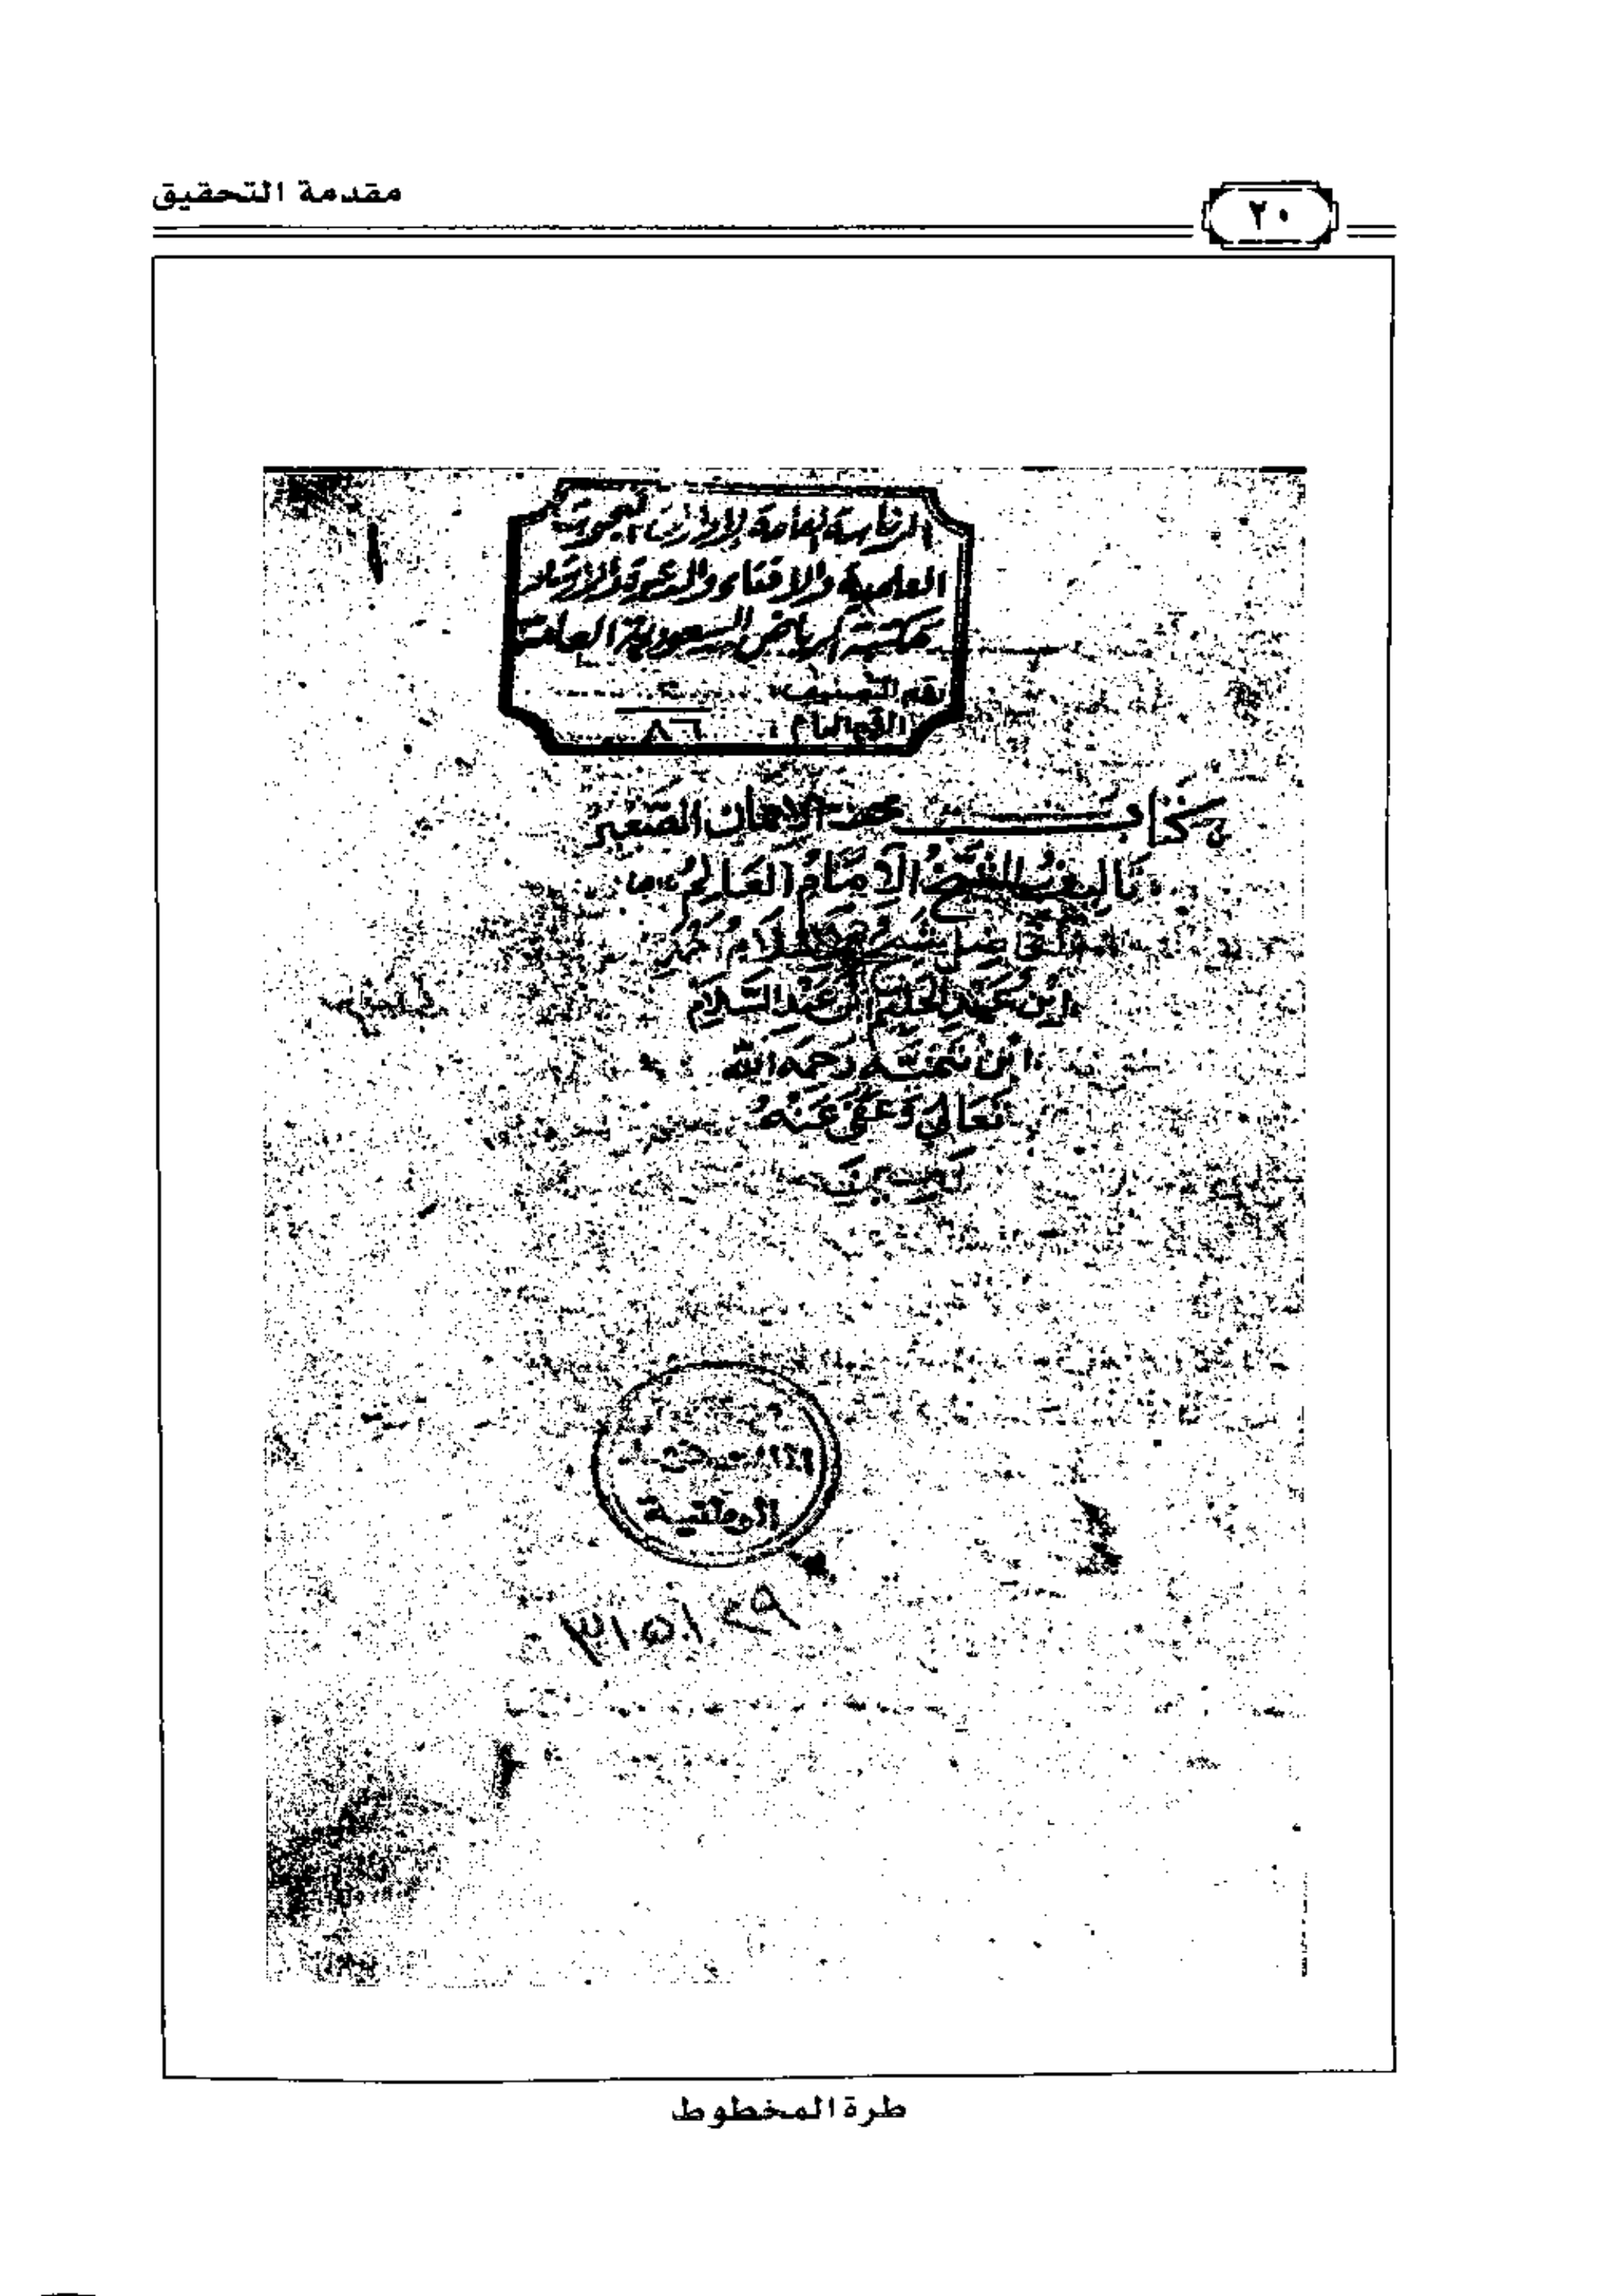 مقدمة التحقيق
٢٠
الرئاسة العامة لإدارات البحوث
العلمية والافتاء والدعوة والارشاد
مكتبة الرياض السعودية العامة
رقم التصنيف:
الرقم العام : ٨٦
كتاب الايمان الصغير
تاليف الشيخ الامام العالم
احمد
ابن عبد الحليم ابن عبد السلام
ابن تيمية رحمه الله
تعالى وعفى عنه
امين
الوطنية
طرة المخطوط